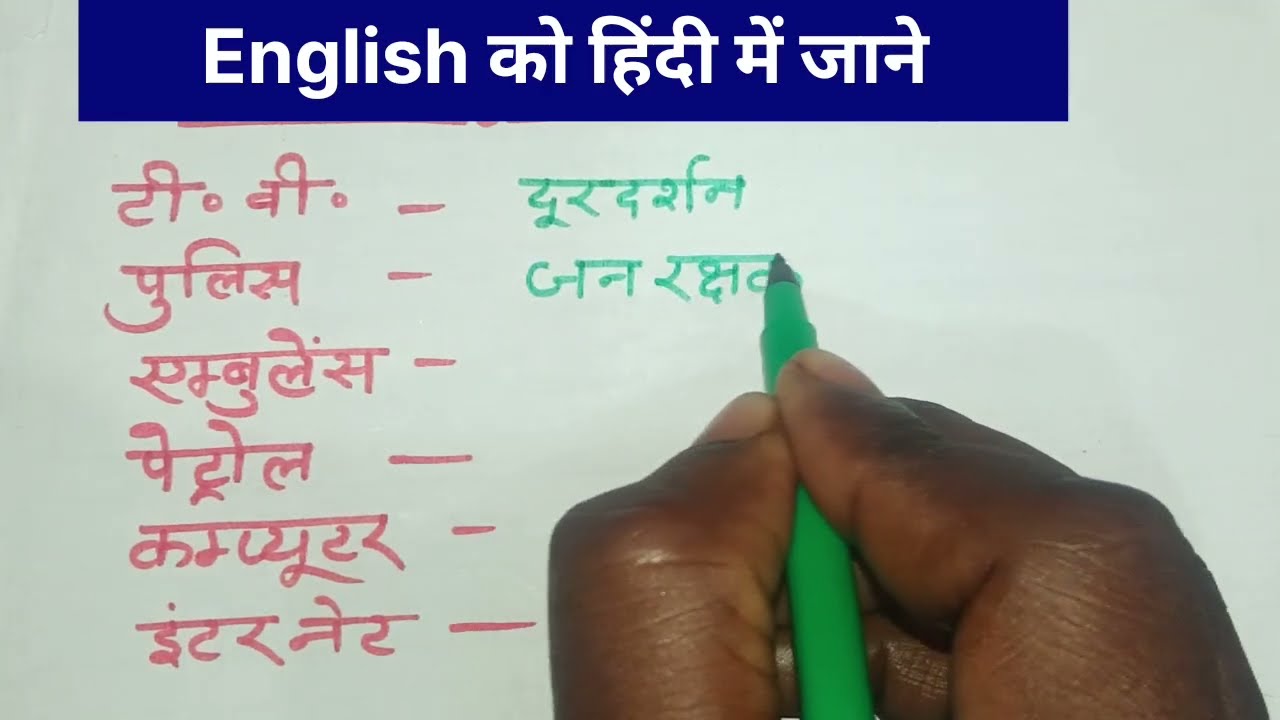 English को हिंदी में जाने
टी॰ वी॰ - दूरदर्शन
पुलिस - जन रक्षक
एम्बुलेंस -
पेट्रोल -
कम्प्यूटर -
इंटरनेट -